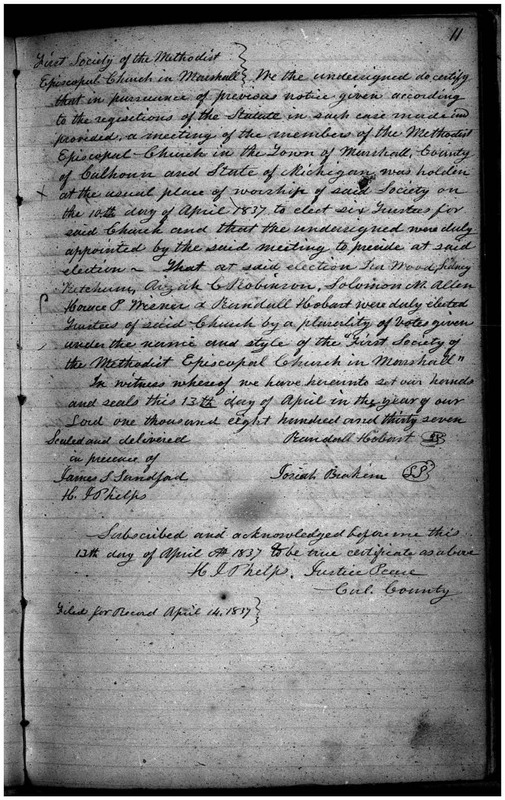 11
First Society of the Methodist
Episcopal Church in Marshall } We the undersigned do certify
that in pursuance of previous notice given according
to the regisetions of the Statute in such case made and
provided, a meeting of the members of the Methodist
Episcopal Church in the Town of Marshall, County
of Calhoun and State of Michigan, was holden
x at the usual place of worship of said Society on
the 10th day of April 1837, to elect six Trustees for
said Church and that the undersigned were duly
appointed by the said meeting to preside at said
election ~ That at said election Ira Wood, Sidney
Ketchum, Aizah C Robinson, Solomon M. Allen
Horace P. Wisner & Randall Hobart were duly elected
Trustees of said Church by a plurality of votes given
under the name and style of the "First Society of
the Methodist Episcopal Church in Marshall"
In witness whereof we have hereunto set our hands
and seals this 13th day of April in the year of our
Lord one thousand eight hundred and thirty seven
Sealed and delivered Randall Hobart
in presence of
James S. Sandford Josiah
H. J Phelps
Subscribed and acknowledged before me this
13th day of April 1837 to be true certificate as above
H J Phelps, Justice Peace
Cal. County
Filed for Record April 14, 1837 }